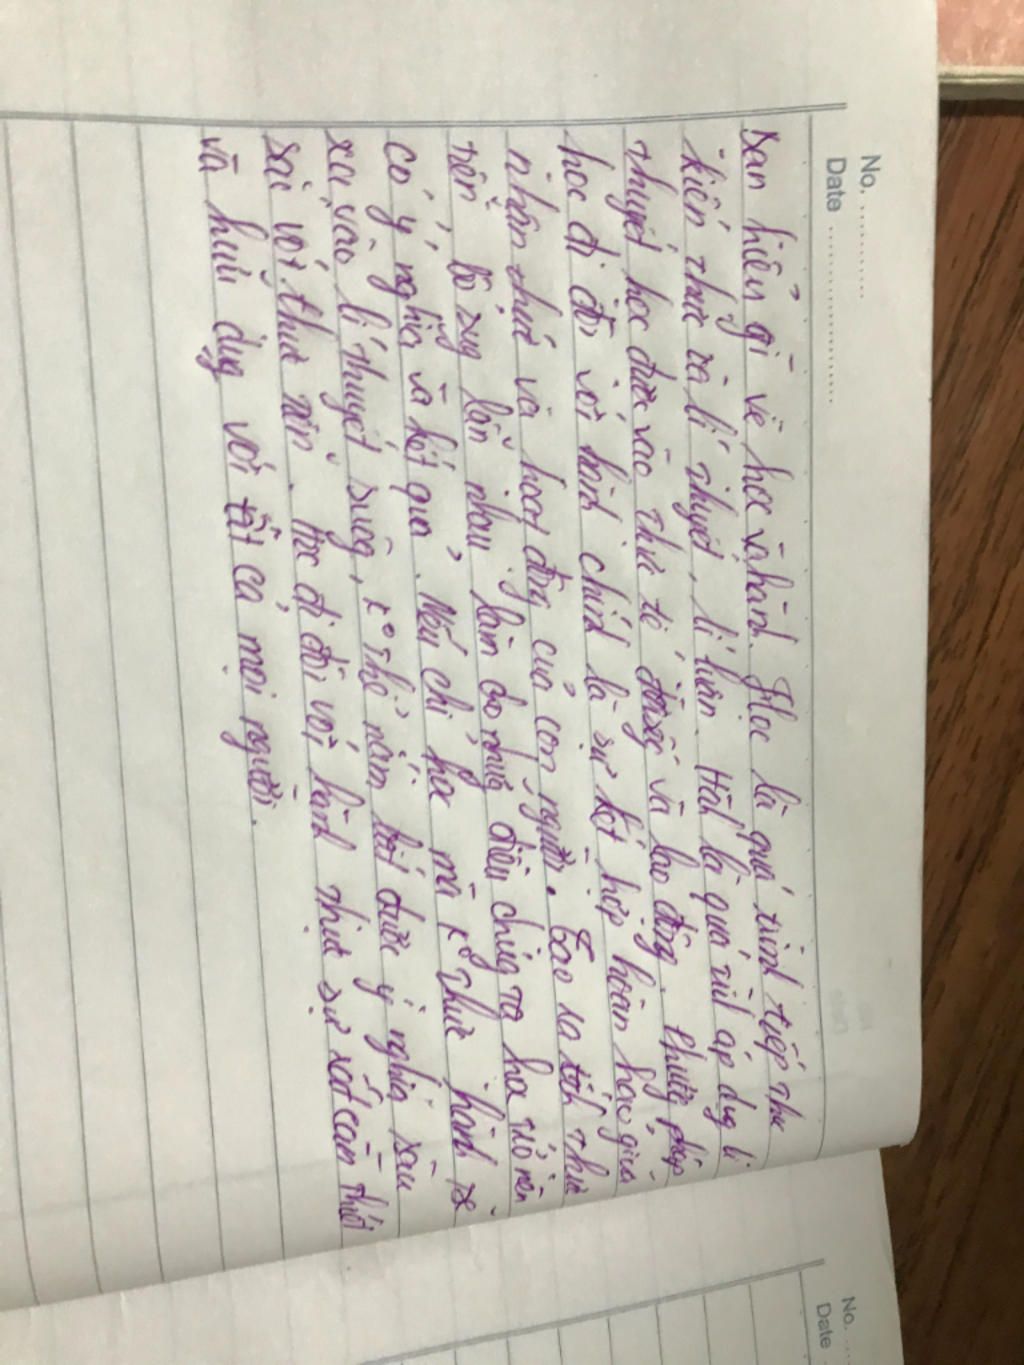 No. ............
Date .....................
Bạn hiểu gì về học và hành. Học là quá trình tiếp thu
kiến thức và lí thuyết, lí luận. Hành là quá trình áp dụg lí
thuyết học được vào thực tế đời sốg và lao độg. Phươg pháp
học đi đôi với hành chính là sự kết hợp hoàn hảo giữa
nhận thức và hoạt độg của con người.
nên bổ sug lẫn nhau làm cho nhữg điều chúg ta học trở nên
có ý nghĩa và kết quả. Nếu chỉ học mà k° thực hành sẽ
xa vào lí thuyết suôg, k° thể nắm bắt được ý nghĩa sâu
sắc với thực tiễn. Học đi đôi với hành thực sự rất cần thiết
và hữu dụg với tất cả mọi người.
No. ...
Date